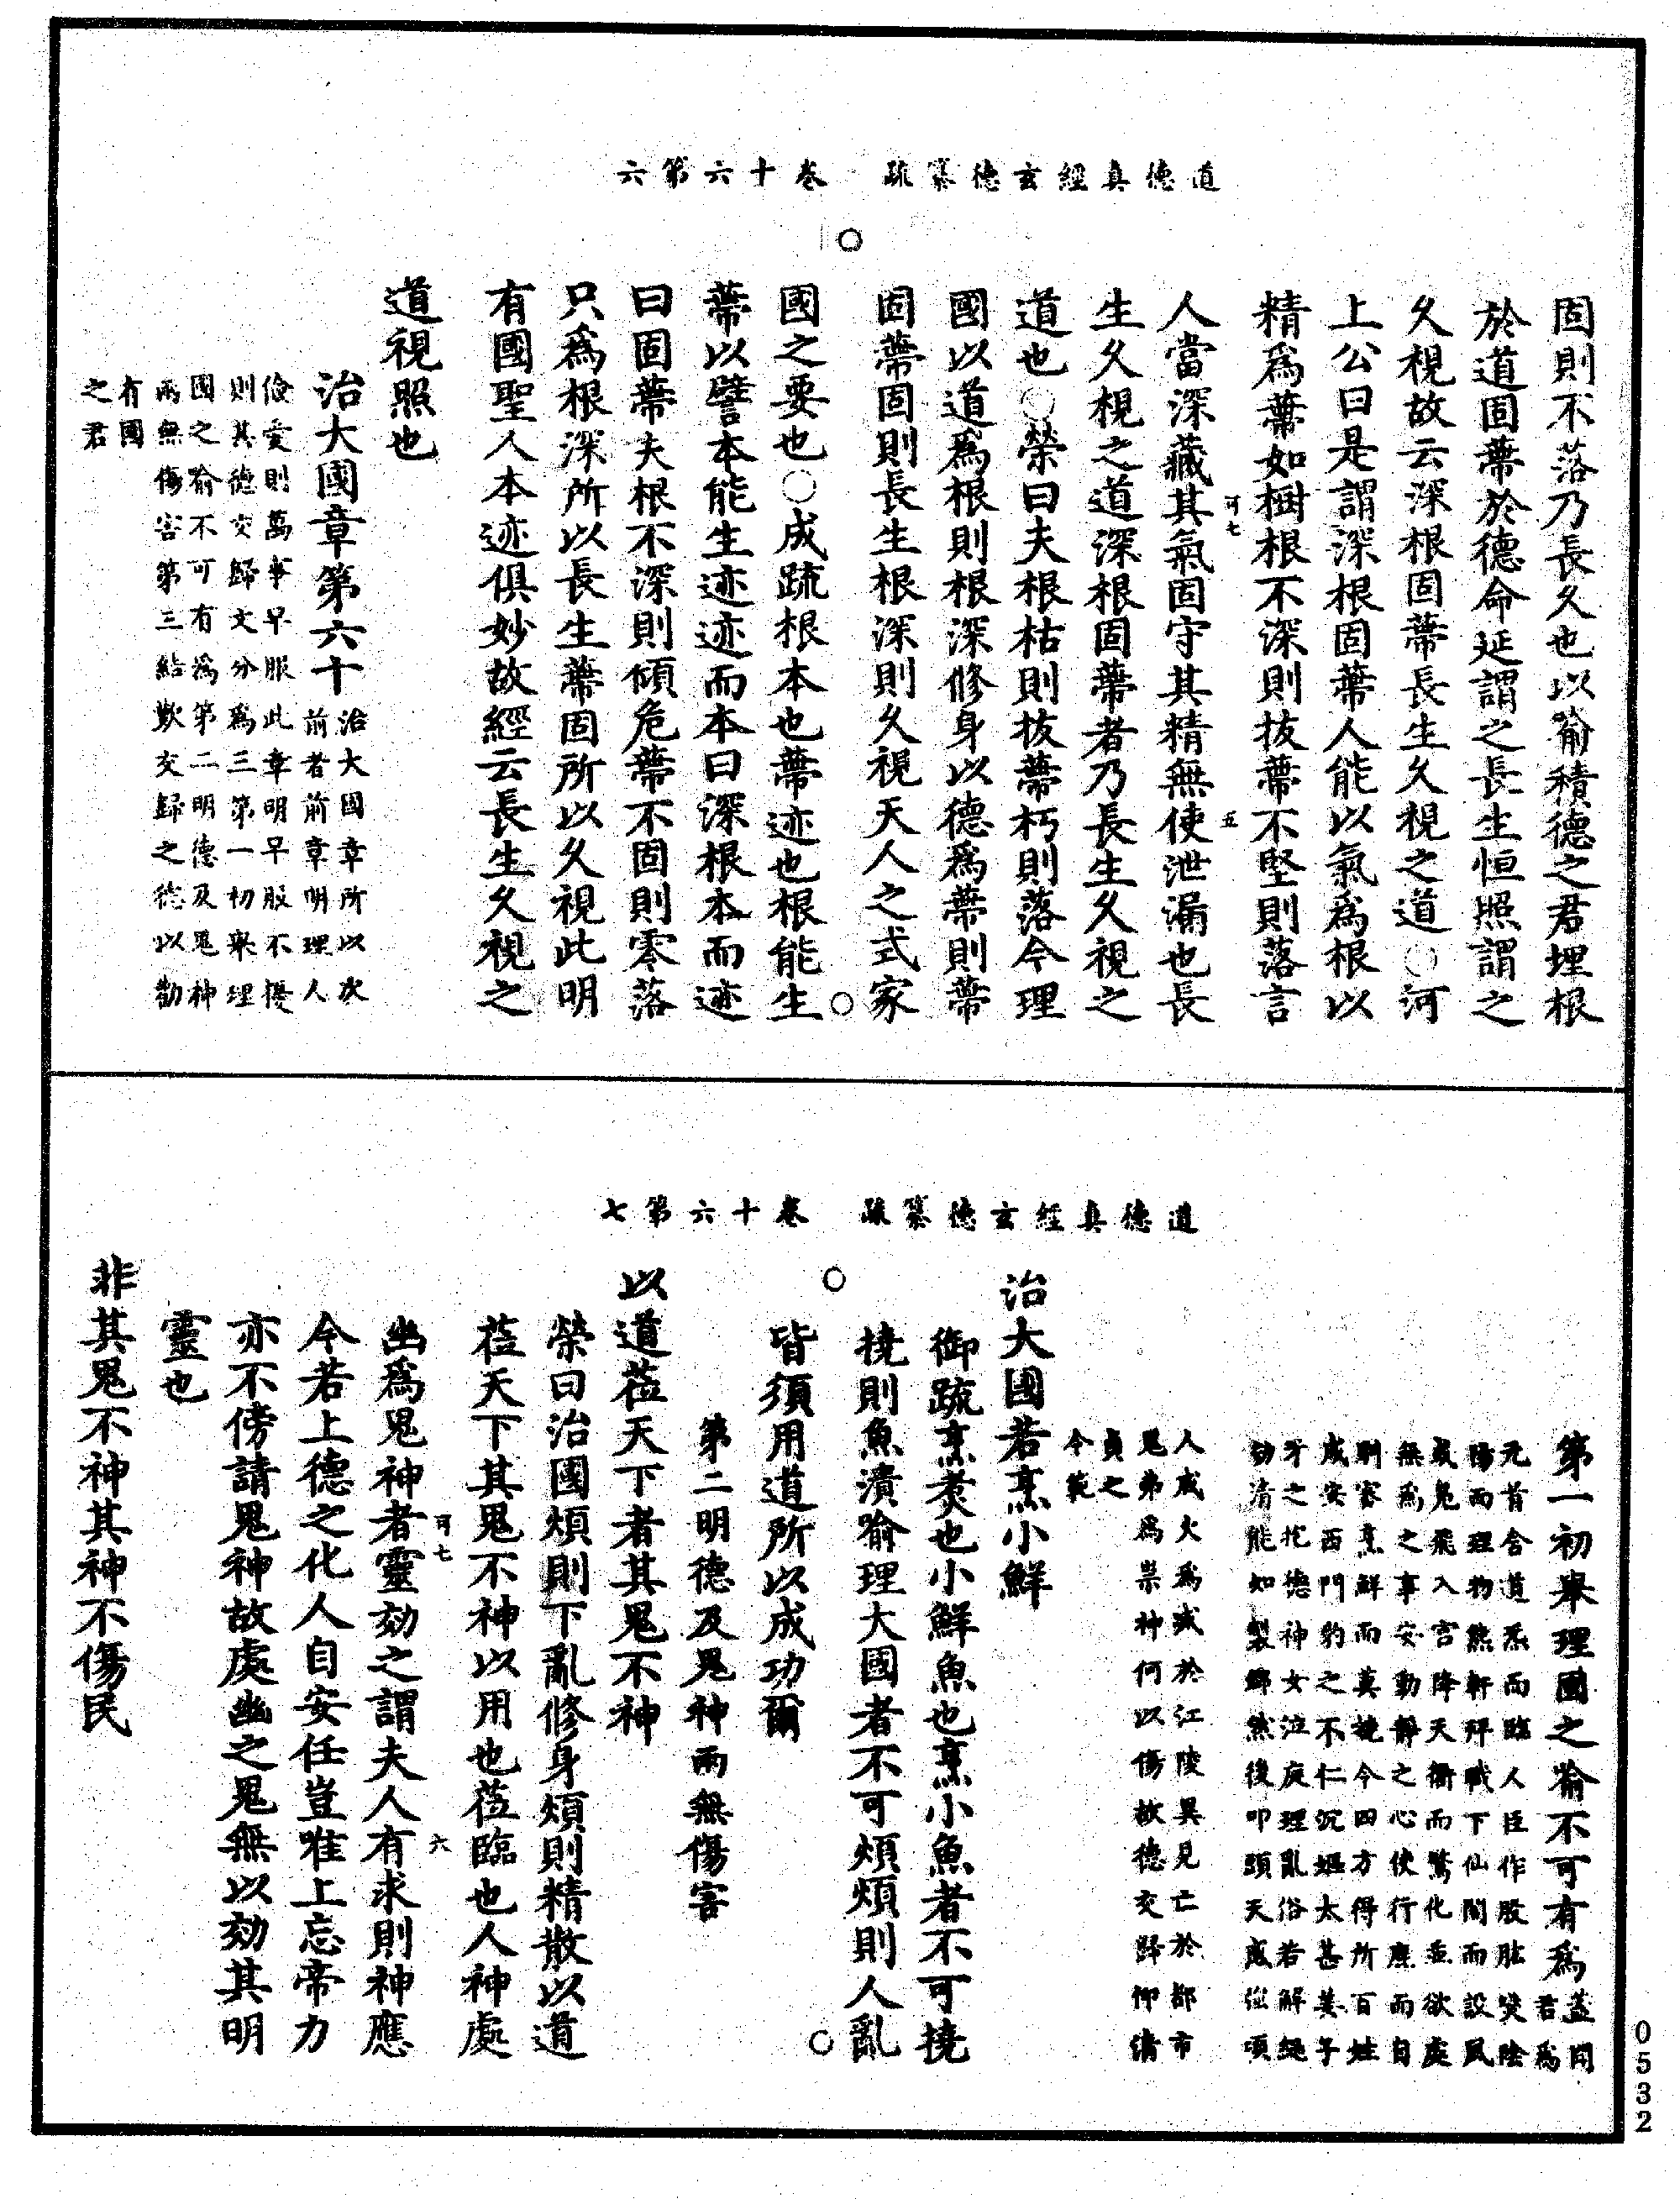 道德真經玄德纂疏　卷十六第六
固則不落乃長久也以喻積德之君理根
於道固蔕於德命延謂之長生恒照謂之
久視故云深根固蔕長生久視之道○河
上公曰是謂深根固蔕人能以氣爲根以
精爲蔕如樹根不深則拔蔕不堅則落言
可七　五
人當深藏其氣固守其精無使泄漏也長
生久視之道深根固蔕者乃長生久視之
道也○榮曰夫根枯則拔蔕朽則落今理
國以道爲根則根深修身以德爲蔕則蔕
固蔕固則長生根深則久視天人之式家
國之要也○成疏根本也蔕迹也根能生
蔕以譬本能生迹迹而本曰深根本而迹
曰固蔕夫根不深則傾危蔕不固則零落
只爲根深所以長生蔕固所以久視此明
有國聖人本迹俱妙故經云長生久視之
道視照也
治大國章第六十
治大國章所以次
前者前章明理人
儉愛則萬事早服此章明早服不擾
則其德交歸文分爲三第一初舉理
國之喻不可有爲第二明德及鬼神
兩無傷害第三結歎交歸之德以勸
有國
之君
道德真經玄德纂疏　卷十六第七
第一初舉理國之喻不可有爲
蓋聞
君爲
元首含道炁而臨人臣作股肱燮陰
陽而理物熊軒拜職下仙閣而設風
或鳧飛入言降天衢而驚化並欲處
無爲之事安動靜之心使行塵而自
審烹鮮而莫撓今四方得所百姓
咸安西門豹之不仁沉嫗太甚姜子
牙之德神女泣庭理亂俗若解繩
劾清能知製錦然後叩頭天感位頃
人咸火爲滅於江陵異見亡於都市
鬼弗爲祟神何以傷故德交歸仰備
貞之
今範
治大國若烹小鮮
御疏烹煑也小鮮魚也烹小魚者不可撓
撓則魚潰喻理大國者不可煩煩則人亂
皆須用道所以成功爾
第二明德及鬼神兩無傷害
以道莅天下者其鬼不神
榮曰治國煩則下亂修身煩則精散以道
莅天下其鬼不神以用也莅臨也人神處
可七　六
幽爲鬼神者靈効之謂夫人有求則神應
今若上德之化人自安任豈唯上忘帝力
亦不傍請鬼神故處幽之鬼無以効其明
靈也
非其鬼不神其神不傷民
0532